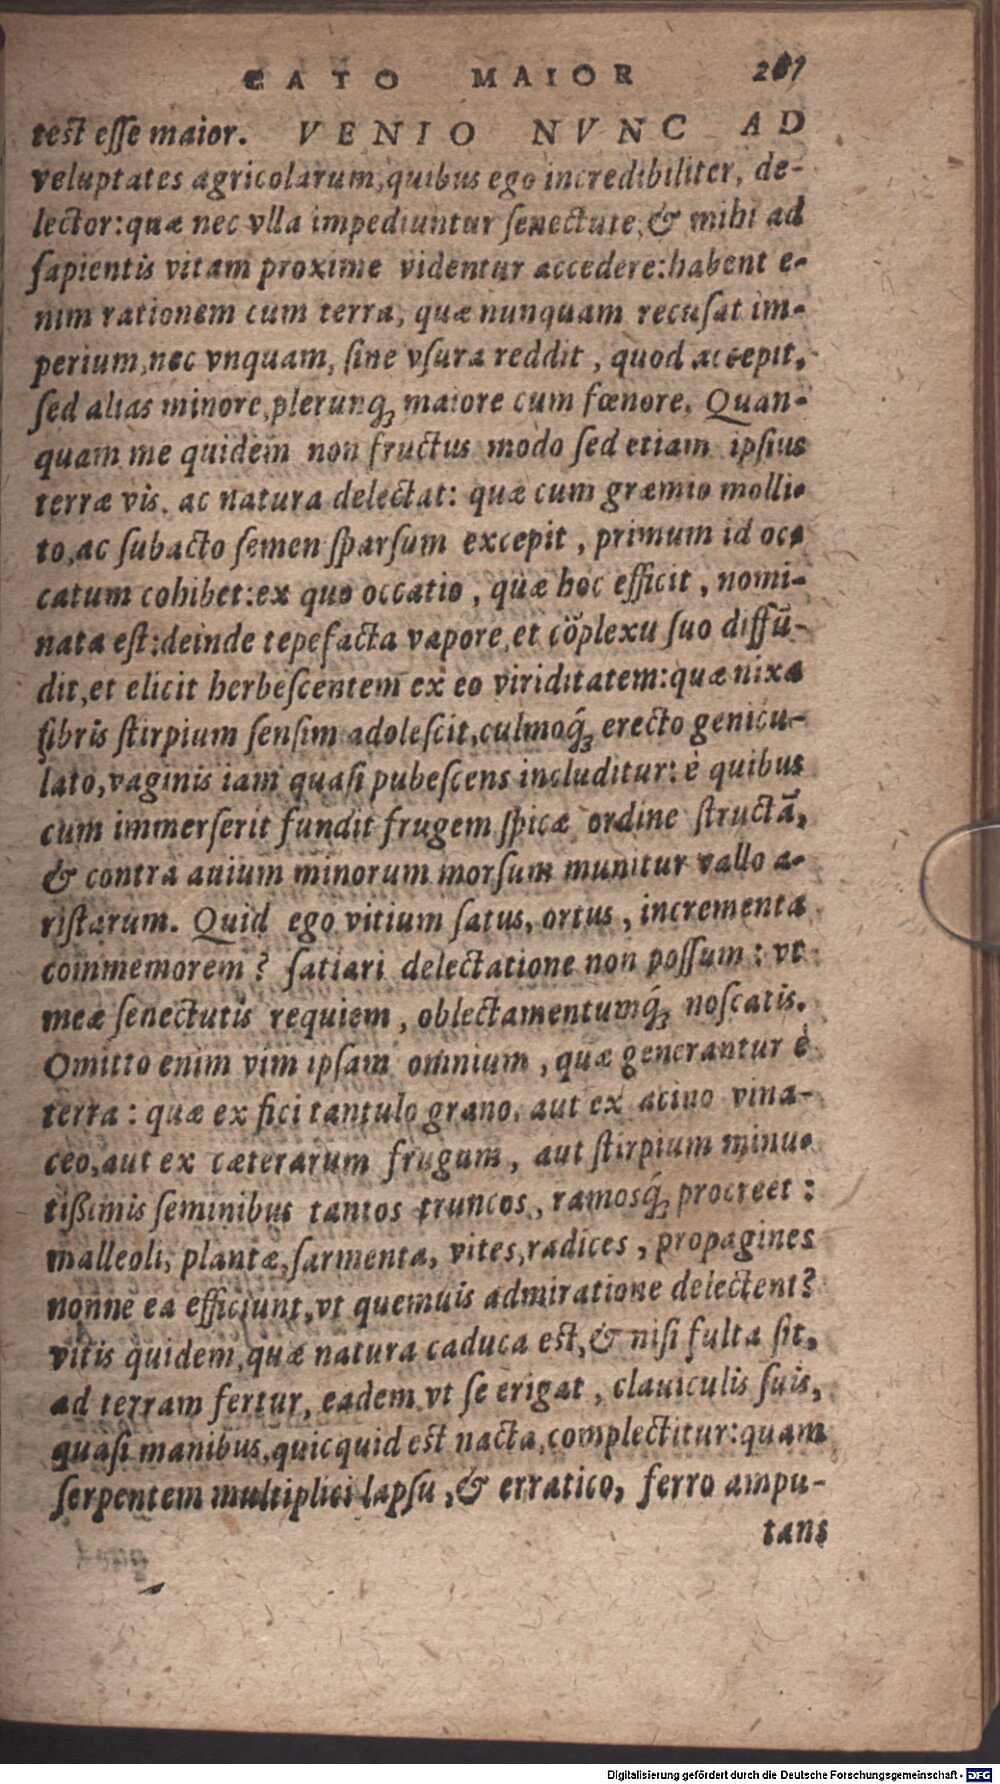 CATO MAIOR
test esse maior. VENIO NVNC AD
voluptates agricolarum, quibus ego incredibiliter, de-
lector: quæ nec vlla impediuntur senectute, & mihi ad
sapientis vitam proxime videntur accedere: habent e-
nim rationem cum terra, quæ nunquam recusat im-
perium, nec vnquam, sine vsura reddit, quod accepit,
sed alias minore, plerunq; maiore cum fœnore. Quan-
quam me quidem non fructus modo sed etiam ipsius
terræ vis, ac natura delectat: quæ cum græmio molli-
to, ac subacto semen sparsum excepit, primum id oc-
catum cohibet: ex quo occatio, quæ hoc efficit, nomi-
nata est: deinde tepefacta vapore, et cõplexu suo diffũ-
dit, et elicit herbescentem ex eo viriditatem: quæ nixa
fibris stirpium sensim adolescit, culmoq́; erecto genicu-
lato, vaginis iam quasi pubescens includitur: è quibus
cum immerserit fundit frugem spicæ ordine structã,
& contra auium minorum morsum munitur vallo a-
ristarum. Quid ego vitium satus, ortus, incrementa
commemorem? satiari delectatione non possum: vt
meæ senectutis requiem, oblectamentumq́; noscatis.
Omitto enim vim ipsam omnium, quæ generantur è
terra: quæ ex fici tantulo grano, aut ex acino vina-
ceo, aut ex cæterarum frugum, aut stirpium minu-
tißimis seminibus tantos truncos, ramosq́; procreet:
malleoli, plantæ, sarmenta, vites, radices, propagines
nonne ea efficiunt, vt quemuis admiratione delectent?
vitis quidem, quæ natura caduca est, & nisi fulta sit,
ad terram fertur, eadem vt se erigat, clauiculis suis,
quasi manibus, quicquid est nacta, complectitur: quam
serpentem multiplici lapsu, & erratico, ferro ampu-
tans
Digitalisierung gefördert durch die Deutsche Forschungsgemeinschaft - DFG